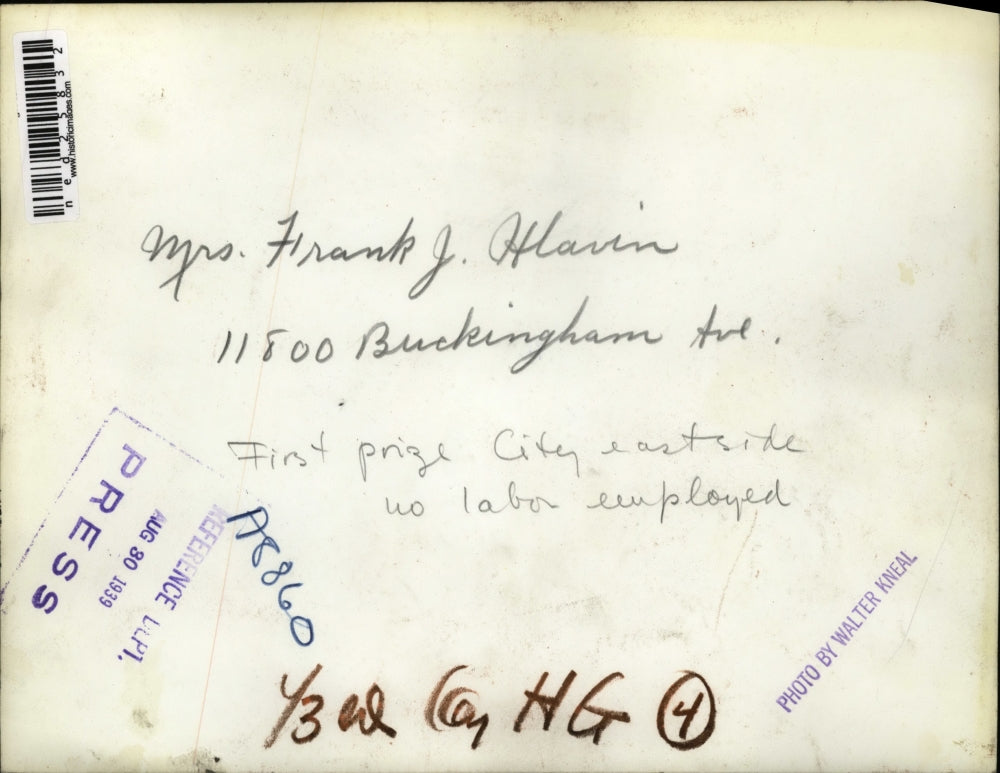 ned25832
www.historicimages.com
Mrs. Frank J. Hlavin
11800 Buckingham Ave.
First prize City eastside
no labor employed
PRESS
AUG 30 1939
REFERENCE DEPT.
A8860
PHOTO BY WALTER KNEAL
HG 4